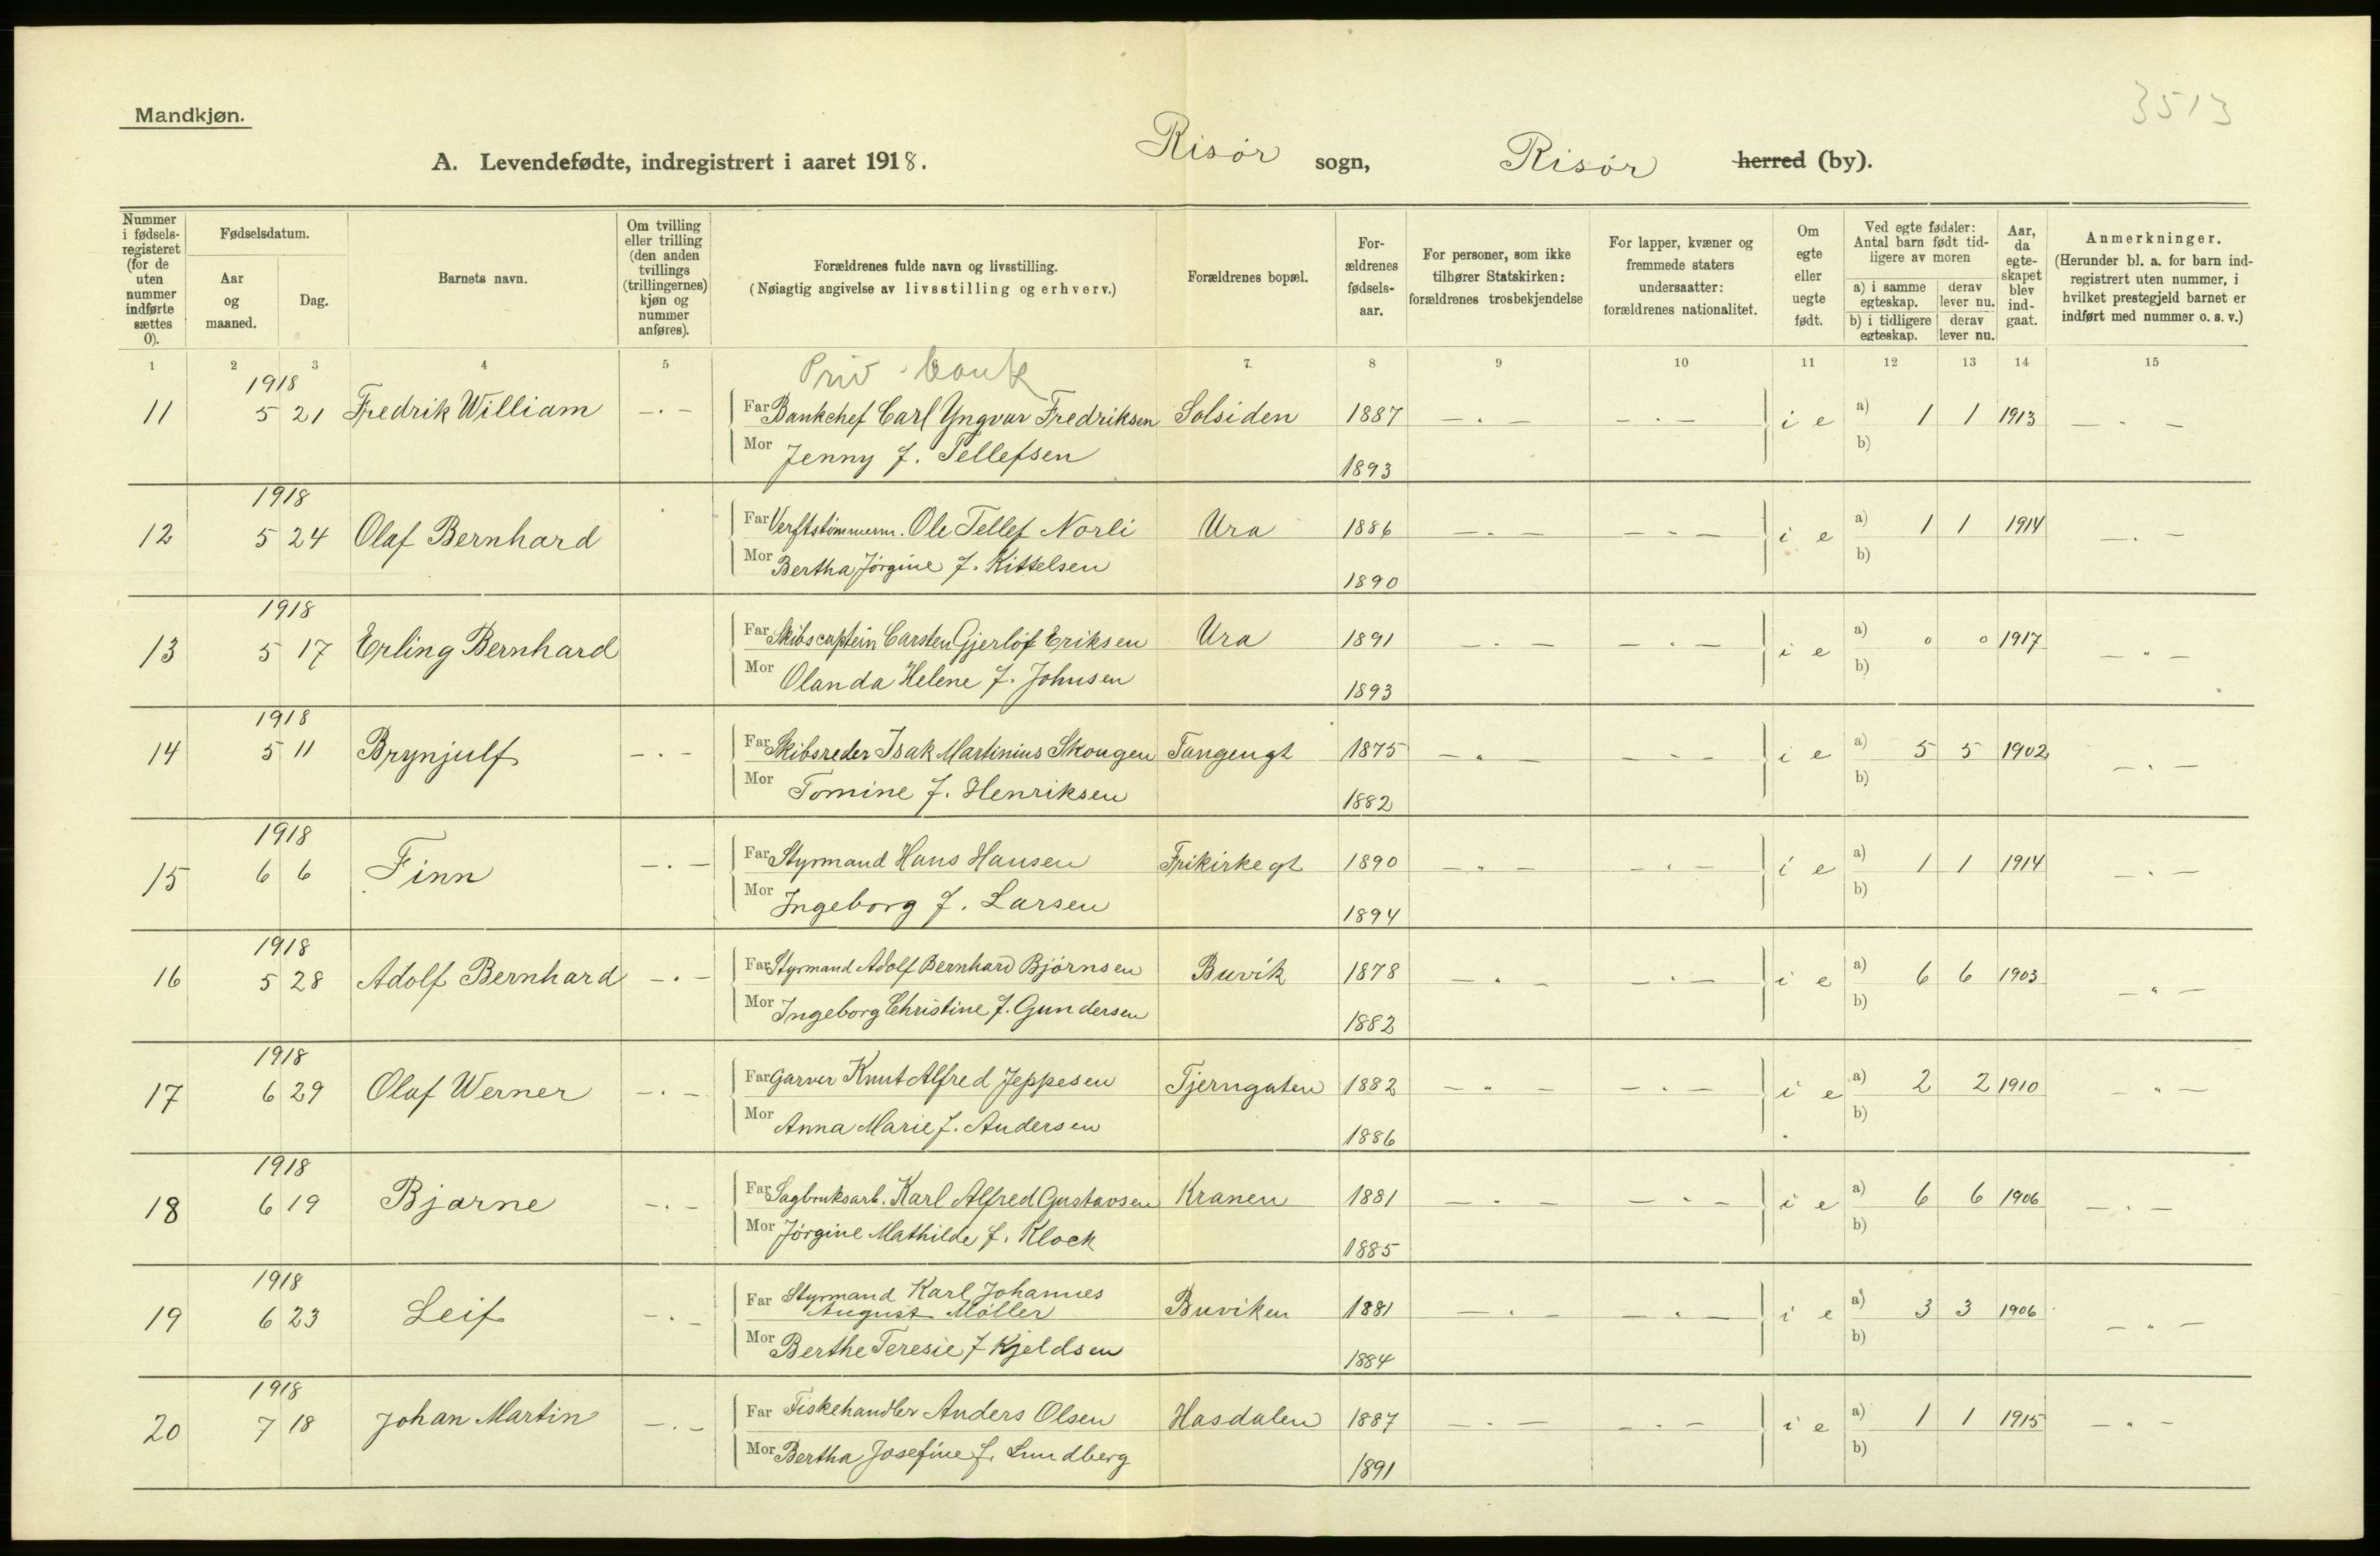 3513
Mandkjøn.
A. Levendefødte, indregistrert i aaret 1918. Risör sogn, Risör herred (by).
Nummer i fødsels-registeret (for de uten nummer indførte sættes 0).
Fødselsdatum.
Aar og maaned.
Dag.
Barnets navn.
Om tvilling eller trilling (den anden tvillings (trillingernes) kjøn og nummer anføres).
Forældrenes fulde navn og livsstilling.
(Nøiagtig angivelse av livsstilling og erhverv.)
Forældrenes bopæl.
For-ældrenes fødsels-aar.
For personer, som ikke tilhører Statskirken: forældrenes trosbekjendelse
For lapper, kvæner og fremmede staters undersaatter: forældrenes nationalitet.
Om egte eller uegte født.
Ved egte fødsler: Antal barn født tid-ligere av moren
a) i samme egteskap. derav lever nu.
b) i tidligere egteskap. derav lever nu.
Aar, da egte-skapet blev ind-gaat.
Anmerkninger.
(Herunder bl. a. for barn ind-registrert uten nummer, i hvilket prestegjeld barnet er indført med nummer o. s. v.)
1 2 3 4 5 7 8 9 10 11 12 13 14 15
Priv. bank
1918
11 5 21 Fredrik William —·— Far Bankchef Carl Yngvar Fredriksen Solsiden 1887 —·— —·— i e a) 1 1 1913 —·—
Mor Jenny f. Tellefsen 1893 b)
1918
12 5 24 Olaf Bernhard Far Verftstömmerm. Ole Tellef Norli Ura 1886 —·— —·— i e a) 1 1 1914 —·—
Mor Bertha Jörgine f. Kittelsen 1890 b)
1918
13 5 17 Erling Bernhard Far Skibscaptein Carsten Gjerlöf Eriksen Ura 1891 —·— —·— i e a) 0 0 1917 —·—
Mor Olanda Helene f. Johnsen 1893 b)
1918
14 5 11 Brynjulf —·— Far Skibsreder Isak Martinius Skougen Tangengt 1875 —·— —·— i e a) 5 5 1902 —·—
Mor Tomine f. Henriksen 1882 b)
1918
15 6 6 Finn —·— Far Styrmand Hans Hansen Frikirkegt 1890 —·— —·— i e a) 1 1 1914 —·—
Mor Ingeborg f. Larsen 1894 b)
1918
16 5 28 Adolf Bernhard —·— Far Styrmand Adolf Bernhard Björnsen Buvik 1878 —·— —·— i e a) 6 6 1903 —·—
Mor Ingeborg Christine f. Gundersen 1882 b)
1918
17 6 29 Olaf Werner —·— Far Garver Knut Alfred Jeppesen Tjerngaten 1882 —·— —·— i e a) 2 2 1910 —·—
Mor Anna Marie f. Andersen 1886 b)
1918
18 6 19 Bjarne —·— Far Sagbruksarb. Karl Alfred Gustavsen Kranen 1881 —·— —·— i e a) 6 6 1906 —·—
Mor Jörgine Mathilde f. Klock 1885 b)
1918
19 6 23 Leif —·— Far Styrmand Karl Johannes
August Möller Buviken 1881 —·— —·— i e a) 3 3 1906 —·—
Mor Berthe Teresie f Kjeldsen 1884 b)
1918
20 7 18 Johan Martin —·— Far Fiskehandler Anders Olsen Hasdalen 1887 —·— —·— i e a) 1 1 1915 —·—
Mor Bertha Josefine f. Lundberg 1891 b)